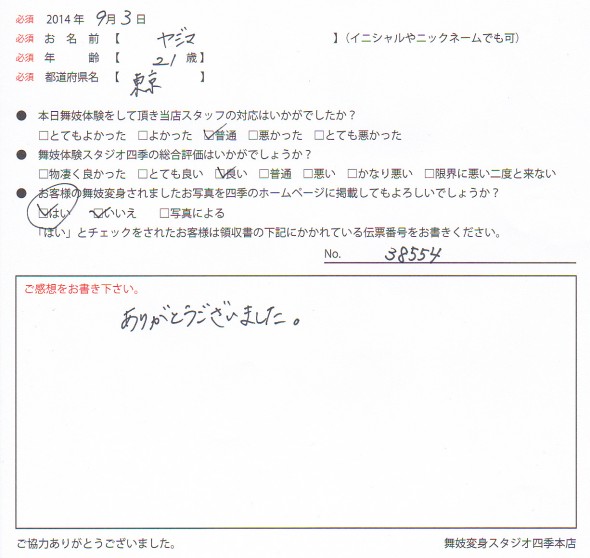 必須 2014年 9月 3日
必須 お名前【 ヤジマ 】(イニシャルやニックネームでも可)
必須 年齢【 21歳】
必須 都道府県名【 東京 】
● 本日舞妓体験をして頂き当店スタッフの対応はいかがでしたか？
□とてもよかった □よかった ☑普通 □悪かった □とても悪かった
● 舞妓体験スタジオ四季の総合評価はいかがでしょうか？
□物凄く良かった □とても良い ☑良い □普通 □悪い □かなり悪い □限界に悪い二度と来ない
● お客様の舞妓変身されましたお写真を四季のホームページに掲載してもよろしいでしょうか？
☑はい ☑いいえ □写真による
「はい」とチェックをされたお客様は領収書の下記にかかれている伝票番号をお書きください。
No. 38554
ご感想をお書き下さい。
ありがとうございました。
ご協力ありがとうございました。 舞妓変身スタジオ四季本店